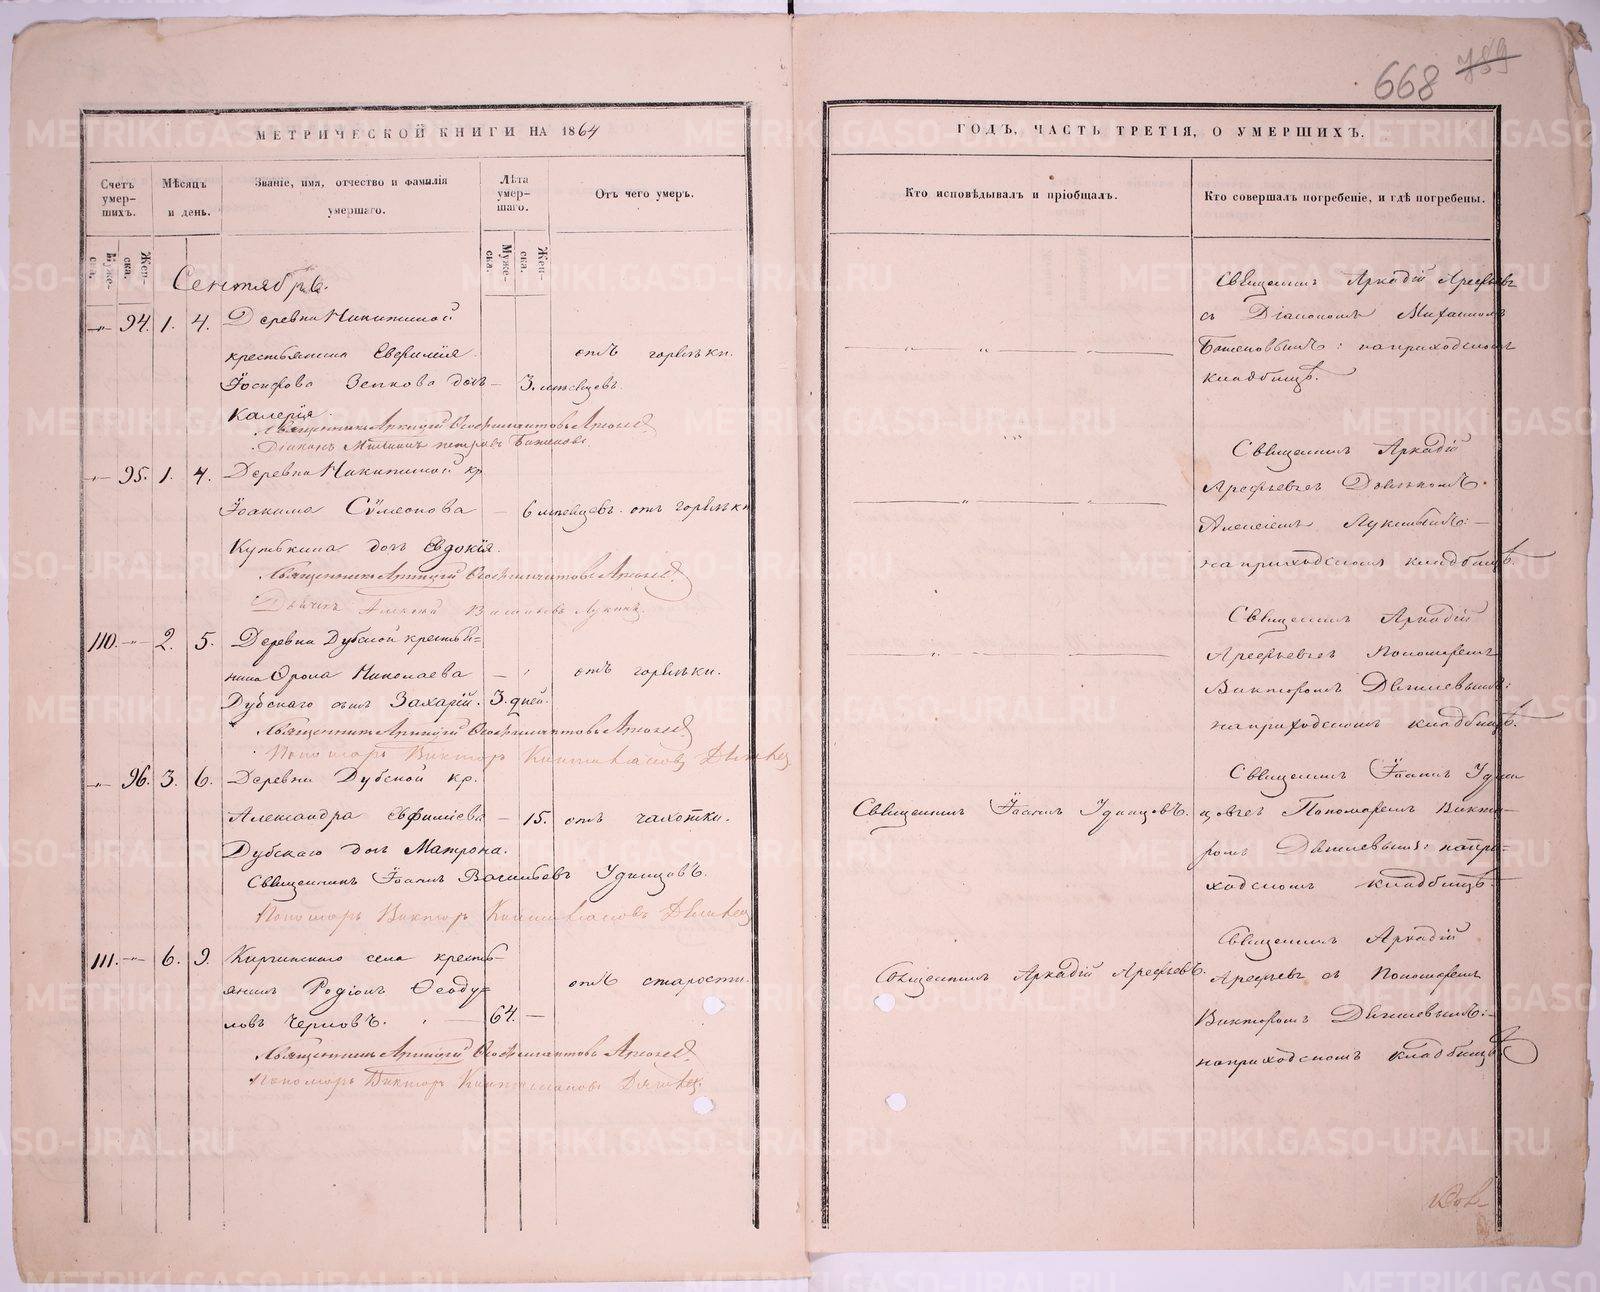 668 789
МЕТРИЧЕСКОЙ КНИГИ НА 1864
Счетъ умер-шихъ.
Мѣсяцъ и день.
Званіе, имя, отчество и фамилія умершаго.
Лѣта умер-шаго.
Отъ чего умеръ.
Муже-ска.
Жен-ска.
Муже-ска.
Жен-ска.
Сентябрь.
94. 1. 4. Деревни Никитиной
крестьянина Евфимія отъ горячки.
Іосифова Зенкова дочь — 3. месяцевъ.
Калерія.
Священникъ Аркадій
Діаконъ Михаилъ Петровъ Баженовъ.
95. 1. 4. Деревни Никитиной кр.
Іоакима Сѵмеонова — 6 месяцевъ. отъ горячки
Кутькина дочь Евдокія.
Священникъ Аркадій
Алексѣй Васильевъ Лукинъ.
110. 2. 5. Деревни Дубской крестья=
нина Фрола Николаева — отъ горячки.
Дубскаго сынъ Захарій. 3. дней.
Священникъ Аркадій
Пономарь Викторъ
96. 3. 6. Деревни Дубской кр.
Александра Евфиміева — 15. отъ чахотки.
Дубскаго дочь Матрона.
Священникъ Іоаннъ Васильевъ Удинцовъ.
Пономарь Викторъ
111. 6. 9. Киргинскаго села кресть=
янинъ Родіонъ Ѳеоду= отъ старости.
ловъ Черновъ. — 64. —
Священникъ Аркадій
Пономарь Викторъ
ГОДЪ, ЧАСТЬ ТРЕТІЯ, О УМЕРШИХЪ.
Кто исповѣдывалъ и пріобщалъ.
Кто совершалъ погребеніе, и гдѣ погребены.
Священникъ Аркадій Арефьевъ
съ Діакономъ Михаиломъ
Баженовымъ: на приходскомъ
кладбищѣ.
Священникъ Аркадій
Арефьевъ съ Дьячкомъ
Алексіемъ Лукинымъ: —
на приходскомъ кладбищѣ.
Священникъ Аркадій
Арефьевъ съ Пономаремъ
Викторомъ
на приходскомъ кладбищѣ.
Священникъ Іоаннъ Удин
Священникъ Іоаннъ Удинцовъ. цовъ съ Пономаремъ Викто—
ромъ на при=
ходскомъ кладбищѣ.
Священникъ Аркадій
Священникъ Аркадій Арефьевъ. Арефьевъ съ Пономаремъ
Викторомъ
на приходскомъ кладбищѣ.
METRIKI.GASO-URAL.RU